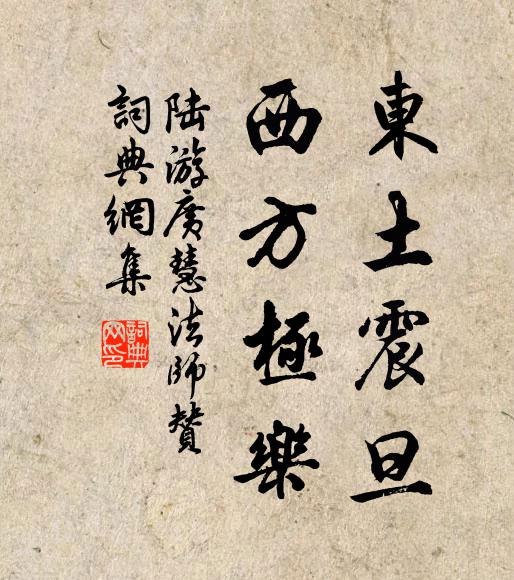 東土震旦
西方極樂
陆游廣慧法師贊
詞典網集
詞典網印